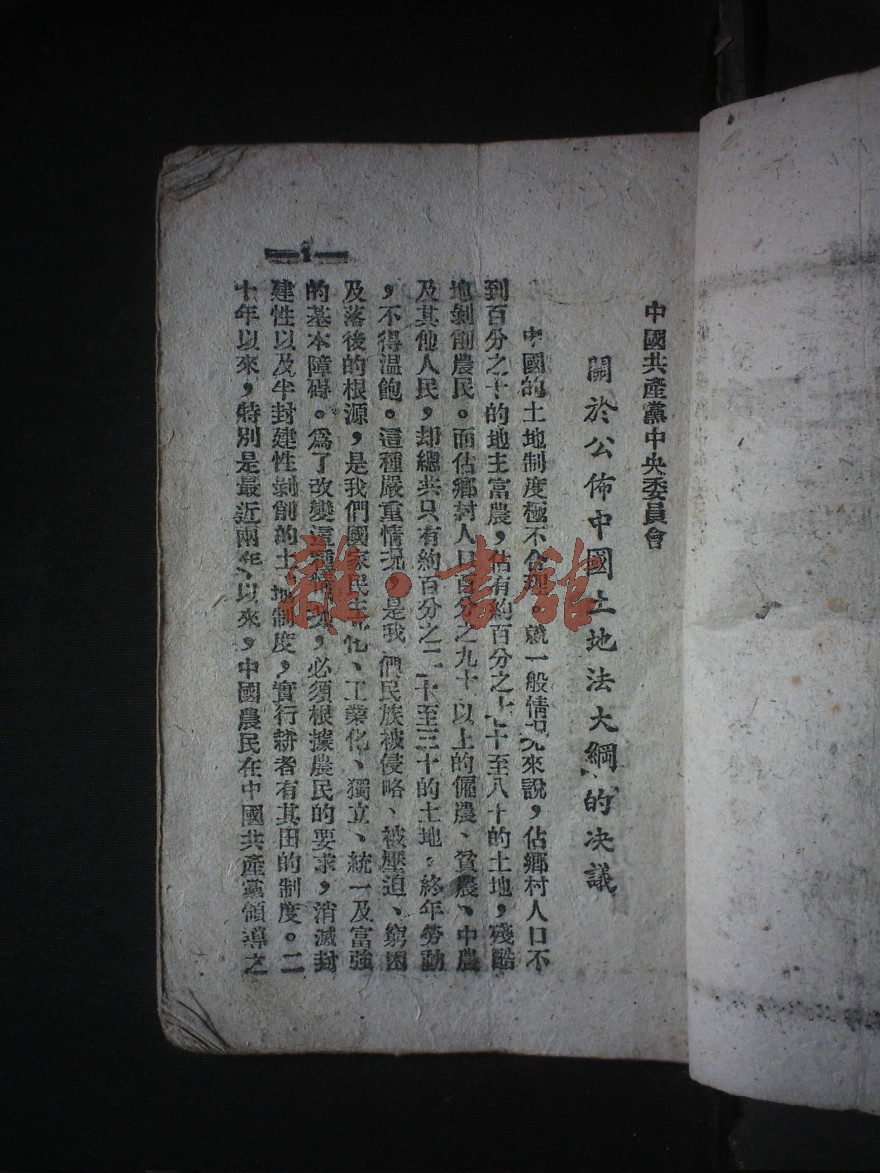 中國共產黨中央委員會
關於公佈中國土地法大綱的决議
中國的土地制度極不合理，就一般情况來說，佔鄉村人口不
到百分之十的地主富農，佔有約百分之七十至八十的土地，殘酷
地剝削農民。而佔鄉村人口百分之九十以上的僱農、貧農、中農
及其他人民，却總共只有約百分之二十至三十的土地，終年勞動
，不得溫飽。這種嚴重情况，是我們民族被侵略、被壓迫、窮困
及落後的根源，是我們國家民主化、工業化、獨立、統一及富強
的基本障碍。爲了改變這種情况，必須根據農民的要求，消滅封
建性以及半封建性剝削的土地制度，實行耕者有其田的制度。二
十年以來，特別是最近兩年以來，中國農民在中國共產黨領導之
1
雜·書舘